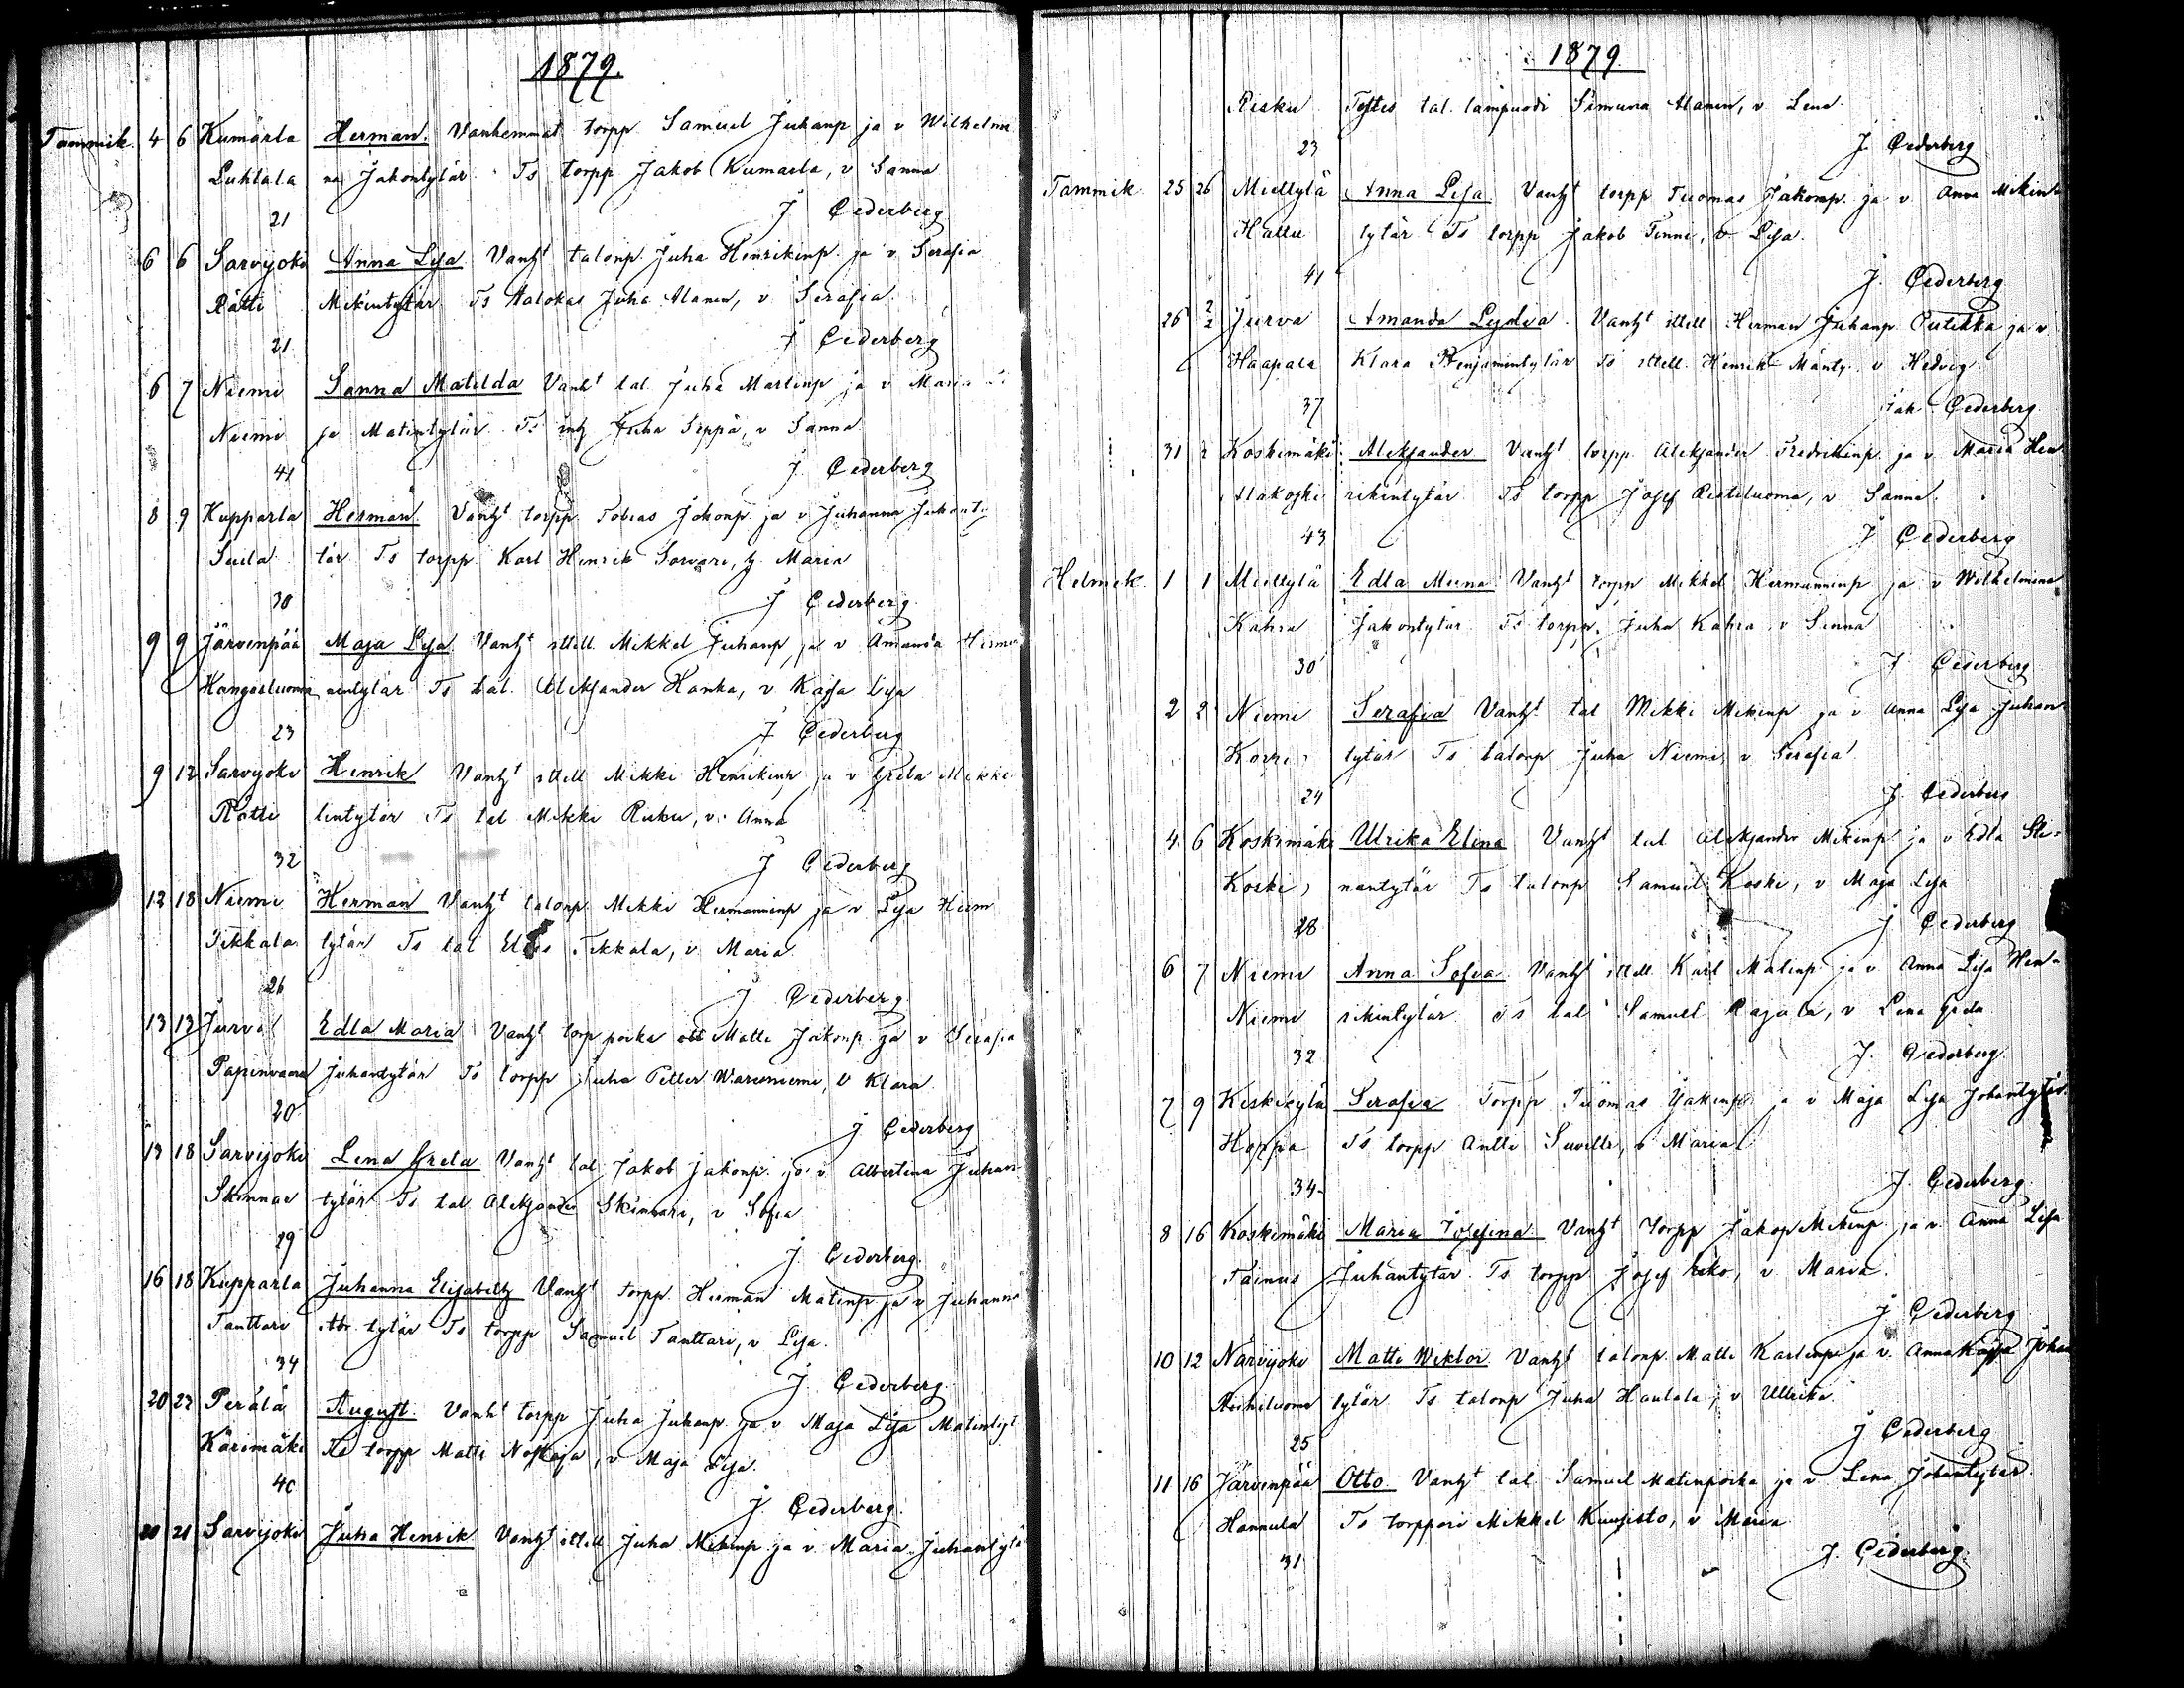 1879.
Tammik. 4 6 Kumärla Herman. Vanhemmat torpp Samuel Juhanp ja v Wilhelmi
Luhtala na Jakontytär. Ts torpp Jakob Kumarla, v Sanna
21 J Cederberg
6 6 Sarvijoki Anna Lisa Vanht talonp Juha Henrikinp ja v Serafia
Rätti Mikintytär Ts talokas Juha Alanen, v Serafia
21 J Cederberg
6 7 Niemi Sanna Matilda Vanht tal. Juha Martinp ja v Maria
Niemi ja Matintytär Ts Juha Seppä, v Sanna
41 J Cederberg
8 9 Kupparla Herman. Vanht torpp Tobias Jakonp ja v Juhanna Juhanty
tär Ts torpp Karl Henrik Sorvari, Maria
30 J Cederberg
9 9 Järvenpää Maja Lisa Vanht ittell Mikkel Juhanp ja v Amanda Herma
Hangasluoma nintytär Ts tal. Aleksander Hanka, v Kajsa Lisa
23 J Cederberg
9 12 Sarvijoki Henrik Vanht ittell Mikki Henrikinp ja v Greta
Rätti lintytär Ts tal Mikki Risku, v. Anna
32 J Cederberg
12 18 Niemi Herman Vanht talonp Mikki Hermanninp ja v Lisa
Pikkala tytär Ts tal v Maria
26 J Cederberg
13 13 Jurva Edla Maria Vanht torp poika Matti Jakonp ja v Serafia
Papinvaara Juhantytär Ts torpp Juha Petter v Klara
20 J Cederberg
13 18 Sarvijoki Lena Greta Vanht tal Jakob Jakonp ja v Albertina Juhan
Skinnar tytär Ts tal Aleksander Skinnari, v Sofia
29 J Cederberg
16 18 Kupparla Juhanna Elisabeth Vanht torpp Herman Matinp ja v Juhanna
Tanttari tytär Ts torpp Samuel Tanttari, v Lisa.
34 J Cederberg
20 22 Perälä August. Vanht torpp Juha Juhanp ja v Maja Lisa Matintyt
Kärimäki Ts torpp Matti v Maja Lisa.
40 J. Cederberg.
20 21 Sarvijoki Juha Henrik Vanht ittell Juha Mikinp ja v Maria Juhantytä
1879.
Risku Testes tal. lampuodi Simuna Alanen, v Lena
23 J Cederberg
Tammik 25 26 Miellylä Anna Lisa. Vanht torpp Tuomas Jakonp. ja v Anna Mikin
Hallu tytär Ts torpp Jakob Tinni, v Lisa.
41 J. Cederberg
26 2/2 Jurva Amanda Lydia. Vanht ittell Herman Juhanp ja v
Haapala Klara Benjamintytär Ts ittell. Henrik Mänty v Hedvig
37 Cederberg
31 2 Koskimäki Aleksander Vanht torpp Aleksander Fredrikinp ja v Maria Hen
Alakoski rikintytär Ts torpp Josef Ristiluoma, v Sanna.
43 J Cederberg
Helmik 1 1 Miellylä Edla Miina Vanht torpp Mikkel Hermanninp ja v Wilhelmina
Kahra Jakontytär Ts torpp. Juha Kahra v Sanna
30 J Cederberg
2 2 Niemi Serafia Vanht tal Mikki Mikinp ja v Anna Lisa Juhan
tytär Ts talonp Juha Niemi v Serafia
24 J Cederberg
4 6 Koskimäki Ulrika Elina Vanht tal Aleksander Mikinp ja v Edla
Koski nantytär Ts talonp Samuel Koski, v Maja Lisa
28 J Cederberg
6 7 Niemi Anna Sofia Vanht ittell Karl Matinp ja v Anna Lisa Hen
Niemi rikintytär Ts tal Samuel Rajala, v Lena Greta
32 J. Cederberg
7 9 Keskikylä Serafia Torpp Tuomas Jakinp ja v Maja Lisa Johantytär
Hoppa Ts torpp Antti v Maria
34 J. Cederberg
8 16 Koskimäki Maria Josefina Vanht Torpp Jakop Mikinp ja v Anna Lisa
Juhantytär. Ts torpp Josef v Maria.
J Cederberg
10 12 Närvijoki Matti Wiktor Vanht talonp. Matti Karlinp ja v. Anna Kajsa Johan
tytär Ts talonp Juha Hautala, v Ulrika
25 J Cederberg
11 16 Järvenpää Otto. Vanht tal Samuel Matinpoika ja v Lena Johantytär
Hannula Ts torppari Mikkel Kuusisto, v Maria
31 J. Cederberg.